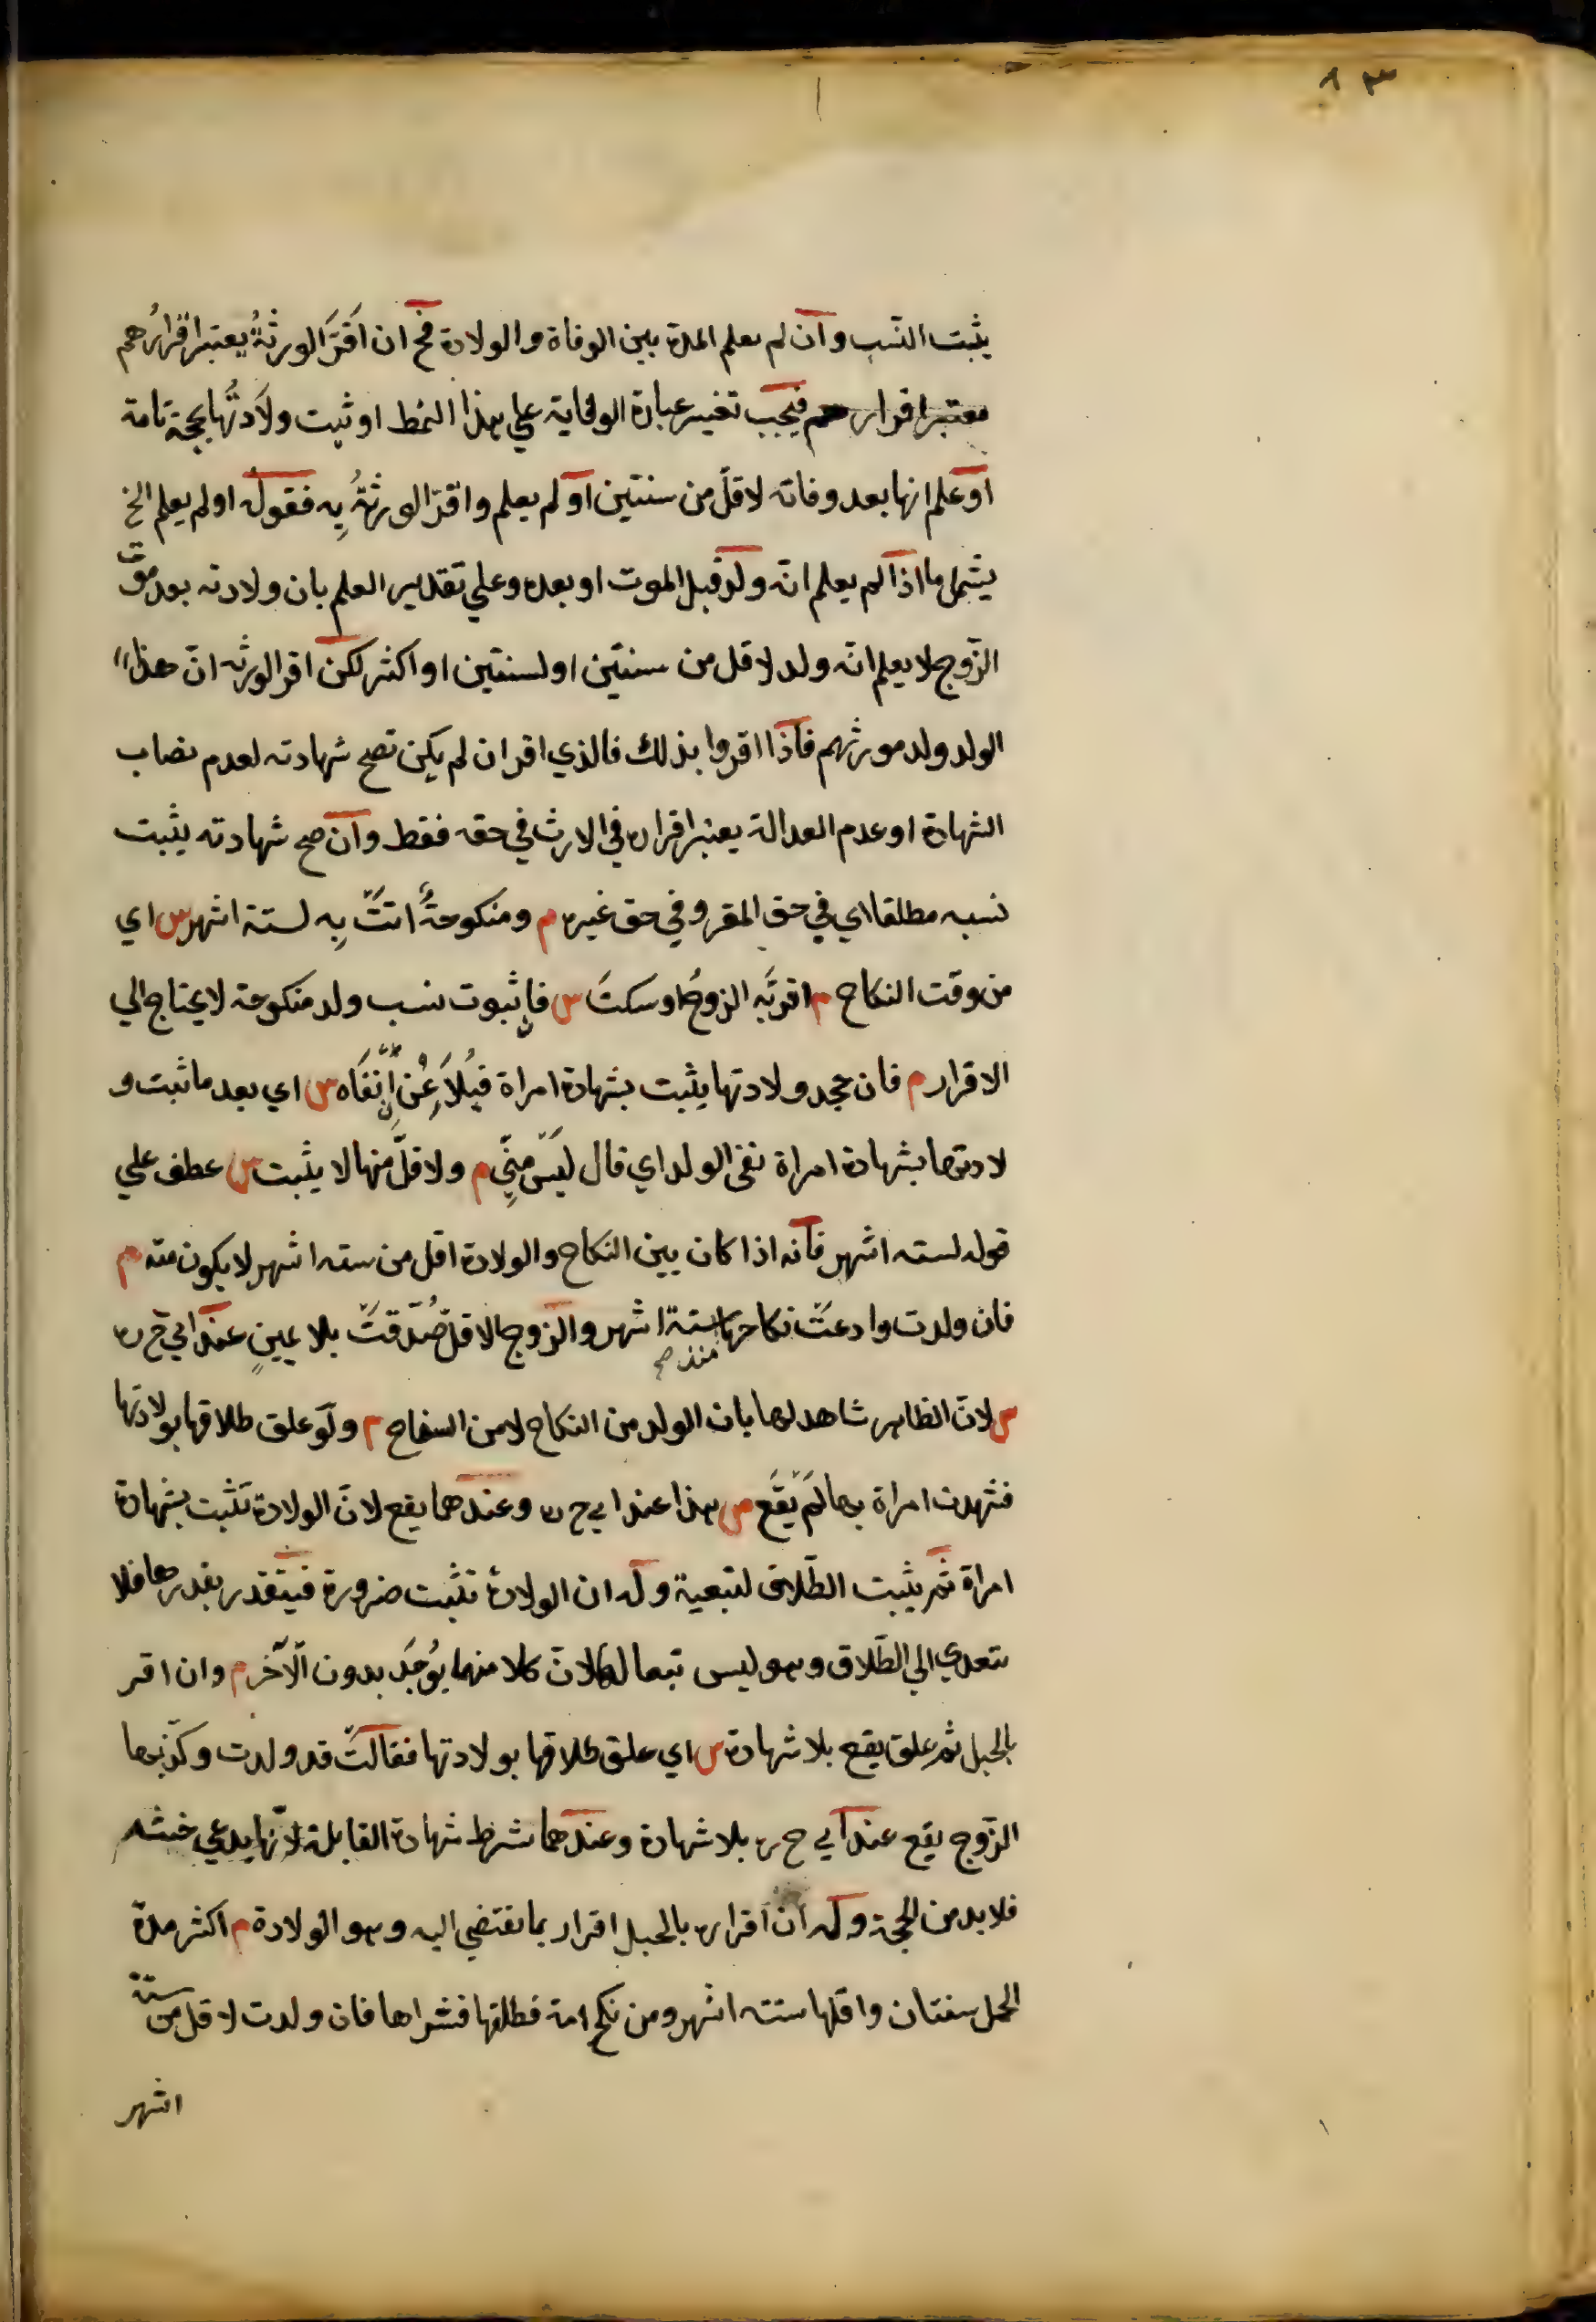 ٨٣
يثبت النسب وآن لم يعلم المدة بين الوفاة والولادة فح ان اَقَرَّ الورثةُ يعتبر اقرارُهم
معتبر اقرارهم فيجب تغيير عبارة الوقاية علي هذا النمط او ثبت ولادتُها بحجة تامة
او علم انها بعد وفاته لاقلّ من سنتين او لم يعلم واقرّ الورثةُ بِه فقوله او لم يعلم الخ
يشمل ما اذا لم يعلم انّه ولد قبل الموت او بعده وعلي تقدير العلم بان ولادته بعد موت
الزّوج لا يعلم انّه ولد لاقل من سنتين او لسنتين او اكثر لكن اقر الورثه انّ هذا
الولد ولد مورثهم فاذا اقروا بذلك فالذي اقر ان لم يكن تصح شهادته لعدم نصاب
الشهادة او عدم العدالة يعتبر اقراره في الارث في حقه فقط وآن صح شهادته يثبت
نسبه مطلقا اي في حق المقر وفي حق غيره م ومنكوحةٌ اتتْ بِه لستة اشهر س اي
من وقت النكاح م اقر بِه الزوجُ او سكتَ س فان ثبوت نسب ولد منكوحة لا يحتاج الي
الاقرار م فان جحد ولادتها يثبت بشهادة امراة فيُلاَعِنُ اِنْ نَفَاه س اي بعد ما ثبت و
لادتها بشهادة امراة نفي الولد اي قال لَيْسَ مِنّي م ولاقلَّ منها لا يثبت س عطف علي
قوله لسته اشهر فآنه اذا كان بين النكاح والولادة اقل من سته اشهر لا يكون منه م
فان ولدت وادعتْ نكاحها منذ ستة اشهر والزّوج الاقل صُدّقتْ بلا يمينٍ عند ابي ح ره
س لانّ الظاهر شاهد لها بان الولد من النكاح لا من السفاح م ولَو علق طلاقها بولادتها
فشهدت امراة بها لَمْ يقَع س هذا عند ابي ح ره وعندهما يقع لانّ الولادة تثبت بشهادة
امراة ثم يثبت الطّلاق لتبعية وله ان الولادة تثبت ضرورة فيتقدر بقدرها فلا
يتعدي الي الطّلاق وهو ليس تبعا لها لانّ كلا منهما يوُجَد بدون الآخر م وان اقر
بالحبل ثم علق يقع بلا شهادة س اي علق طلاقها بولادتها فقالتْ قد ولدت وكذّبها
الزّوج يقع عند ابي ح ره بلا شهادة وعندهما شرط شهادة القابلة لانّها يدعي حنثه
فلا بد من الحجة وله ان اقراره بالحبل اقرار بما يفضي اليه وهو الولادة م اكثر مدة
الحمل سنتان واقلها ستته اشهر ومن نكح امة فطلقها فشراها فان ولدت لاقل من ستة
اشهر